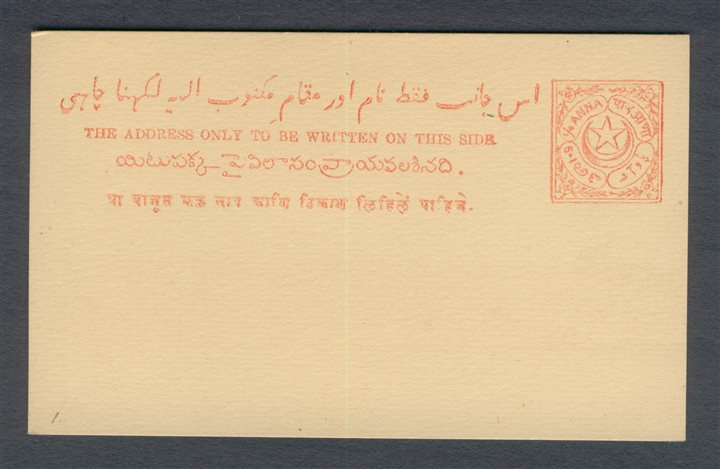 اس جانب فقط نام اور مقام مکتوب الیہ لکھنا چاہئے
THE ADDRESS ONLY TO BE WRITTEN ON THIS SIDE
యిటుపక్క పైవిలాసంవ్రాయవలశినది.
या बाजूस फक्त नाव आणि ठिकाण लिहिलें पाहिजे.
¼ ANNA पाव आणा
1.